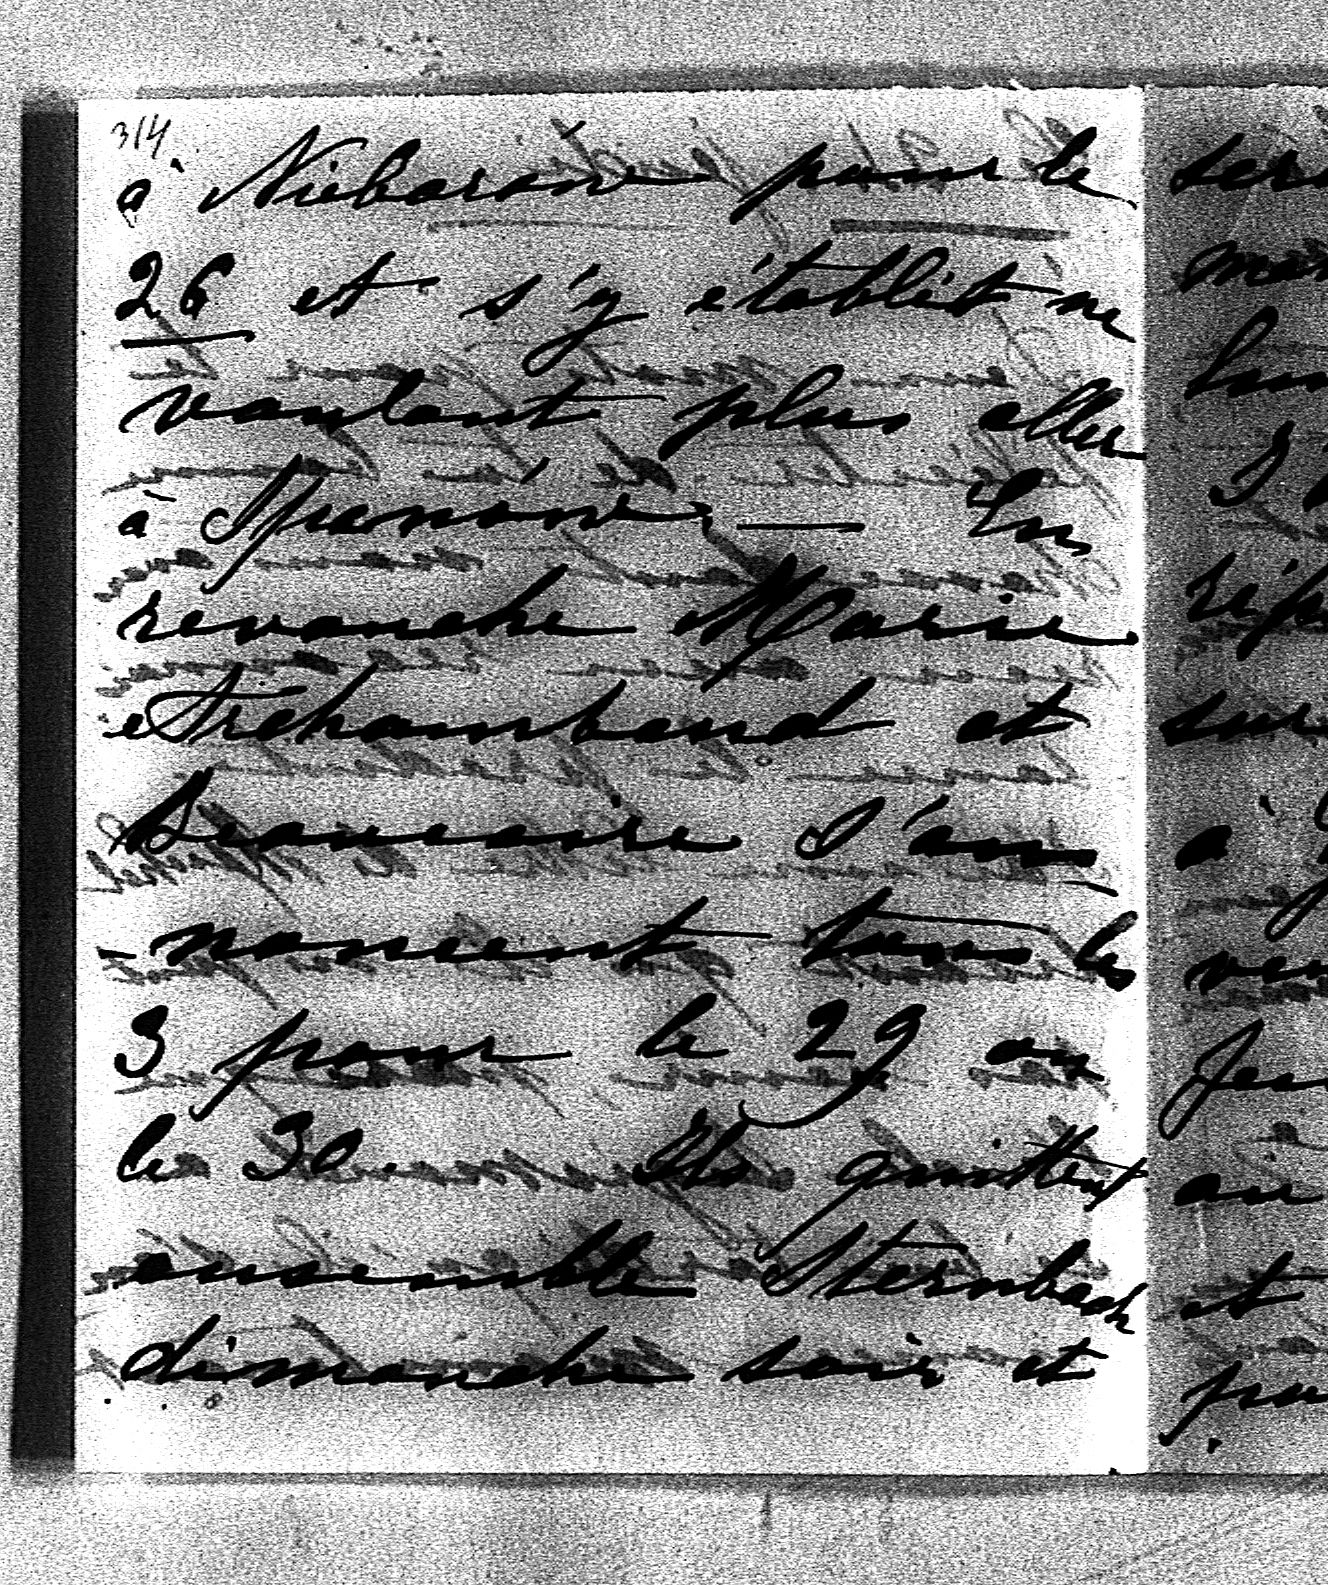 314
à Nieborów pour le
26 et s'y établit ne
voulant plus aller
à Spanów — En
revanche Marie
et Rehambend et
Beaucaire s'an
-noncent tous les
3 pour le 29 ou
le 30. Ils quittent
ensemble Sternbach
dimanche soir et